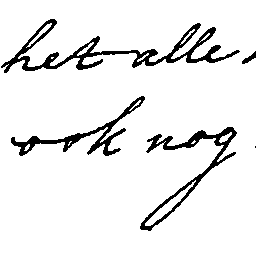 het alle
ook nog